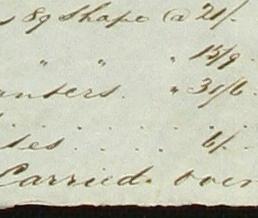 89 Shape @ 21/.
" " " 15/9.
anters. " 31/6.
tes. . . . 6/.
Carried over